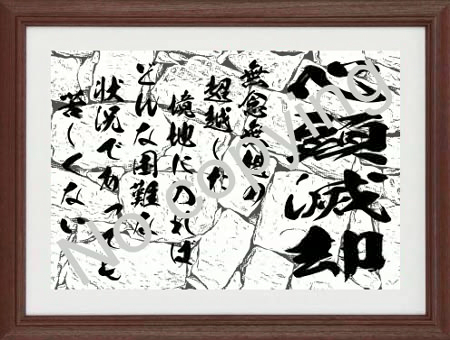 心頭滅却
無念無想の
超越した
境地に入れば
どんな困難な
状況であっても
苦しくない
No copying